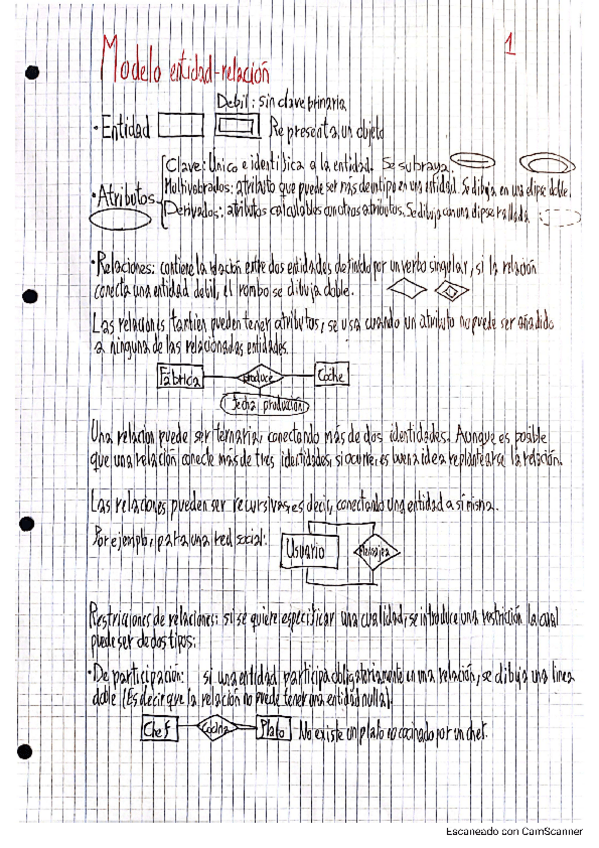 1
Modelo entidad-relación
Debil: sin clave primaria
• Entidad Representa un objeto
Clave: Unico e identifica a la entidad. Se subraya.
• Atributos
Multivalorados: atributo que puede ser más de un tipo en una entidad. Se dibuja en una elipse doble.
Derivados: atributos calculables con otros atributos. Se dibuja con una elipse rallada.
• Relaciones: contiene la relación entre dos entidades definido por un verbo singular, si la relación
conecta una entidad debil, el rombo se dibuja doble.
Las relaciones tambien pueden tener atributos, se usa cuando un atributo no puede ser añadido
a ninguna de las relacionadas entidades.
Fábrica produce Coche
fecha producción
Una relacion puede ser ternaria, conectando más de dos identidades. Aunque es posible
que una relación conecte más de tres identidades, si ocurre, es buena idea replantearse la relación.
Las relaciones pueden ser recursivas, es decir, conectando una entidad a si misma.
Por ejemplo, para una red social:
Usuario Mensajea
Restricciones de relaciones: si se quiere especificar una cualidad, se introduce una restricción la cual
puede ser de dos tipos:
• De participación: si una entidad participa obligatoriamente en una relación, se dibuja una linea
doble (Es decir que la relación no puede tener una entidad nulla).
Chef Cocina Plato No existe un plato no cocinado por un chef.
Escaneado con CamScanner